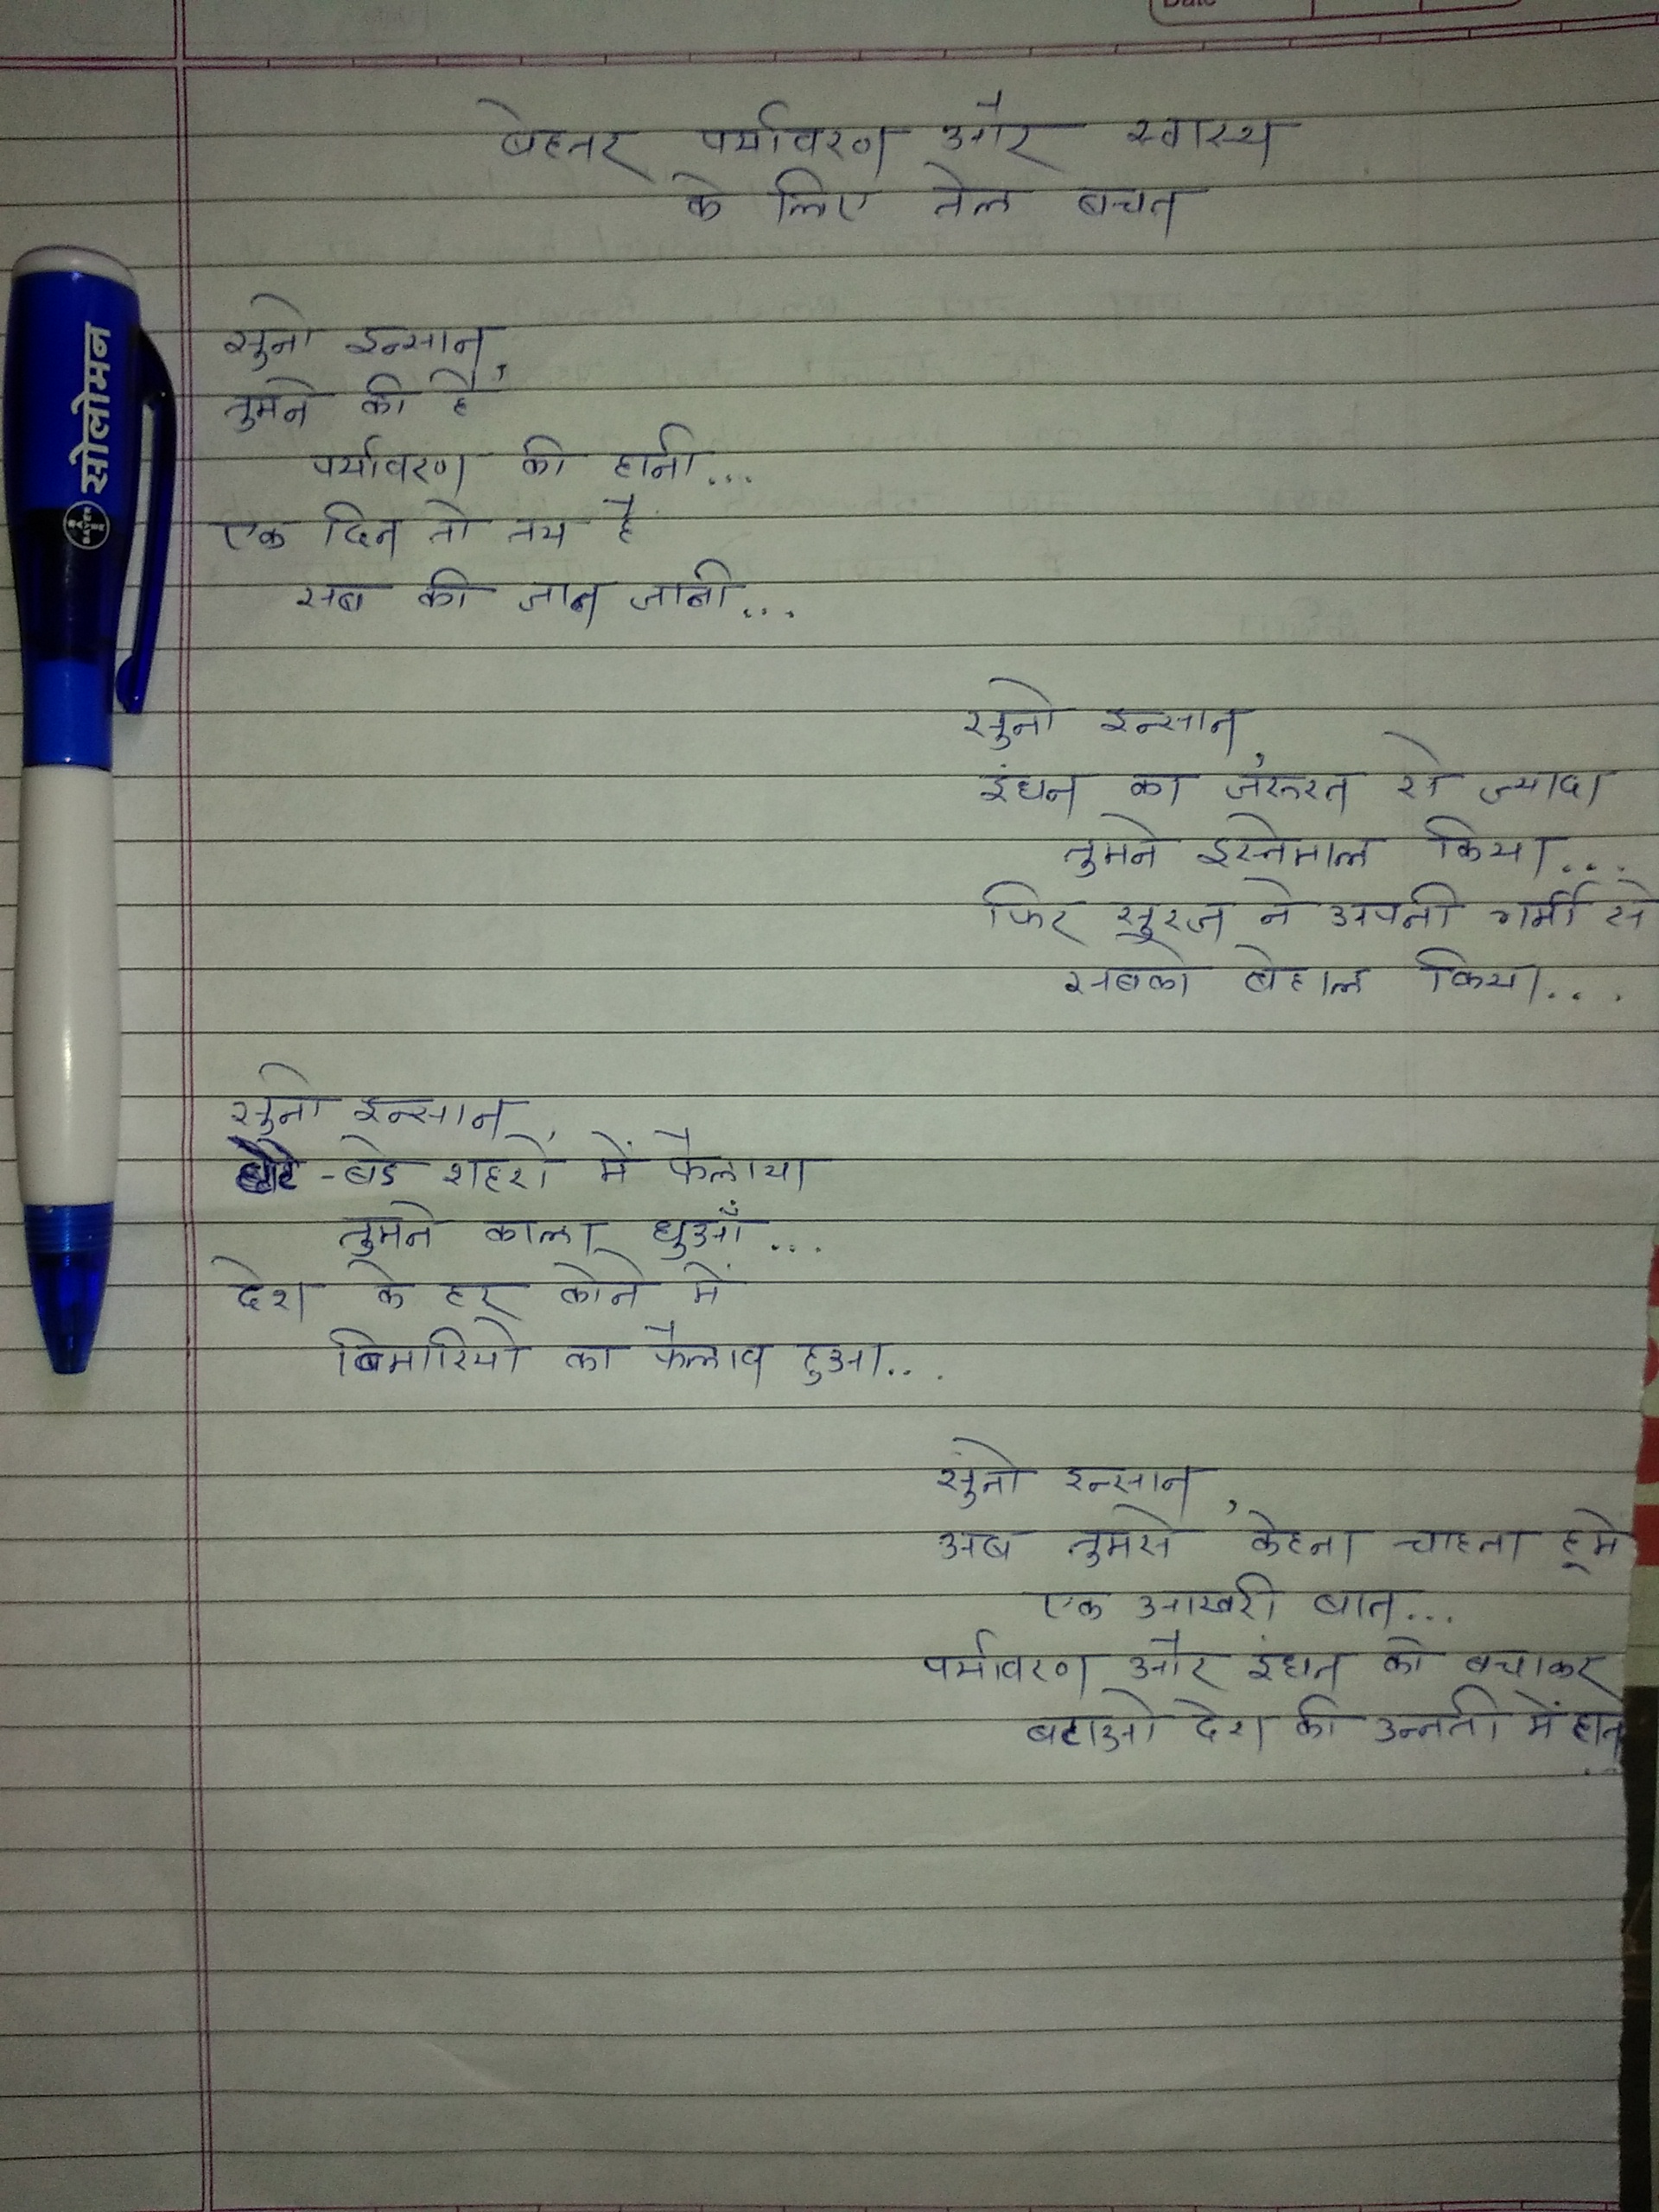 Date
बेहतर पर्यावरण और स्वास्थ
के लिए तेल बचत
सुनो इन्सान,
तुमने की है
पर्यावरण की हानी...
एक दिन तो तय है
सब की जान जानी...
सुनो इन्सान,
इंधन का जरूरत से ज्यादा
तुमने इस्तेमाल किया...
फिर सूरज ने अपनी गर्मी से
सबको बेहाल किया...
सुनो इन्सान,
-बडे शहरों में फैलाया
तुमने काला धुआँ...
देश के हर कोने में
बिमारियो का फैलाव हुआ...
सुनो इन्सान,
अब तुमसे केहना चाहता हू मे
एक आखरी बात...
पर्यावरण और इंधन को बचाकर
बटाओ देश की उन्नती में हात
...
सोलोमन
BAYER